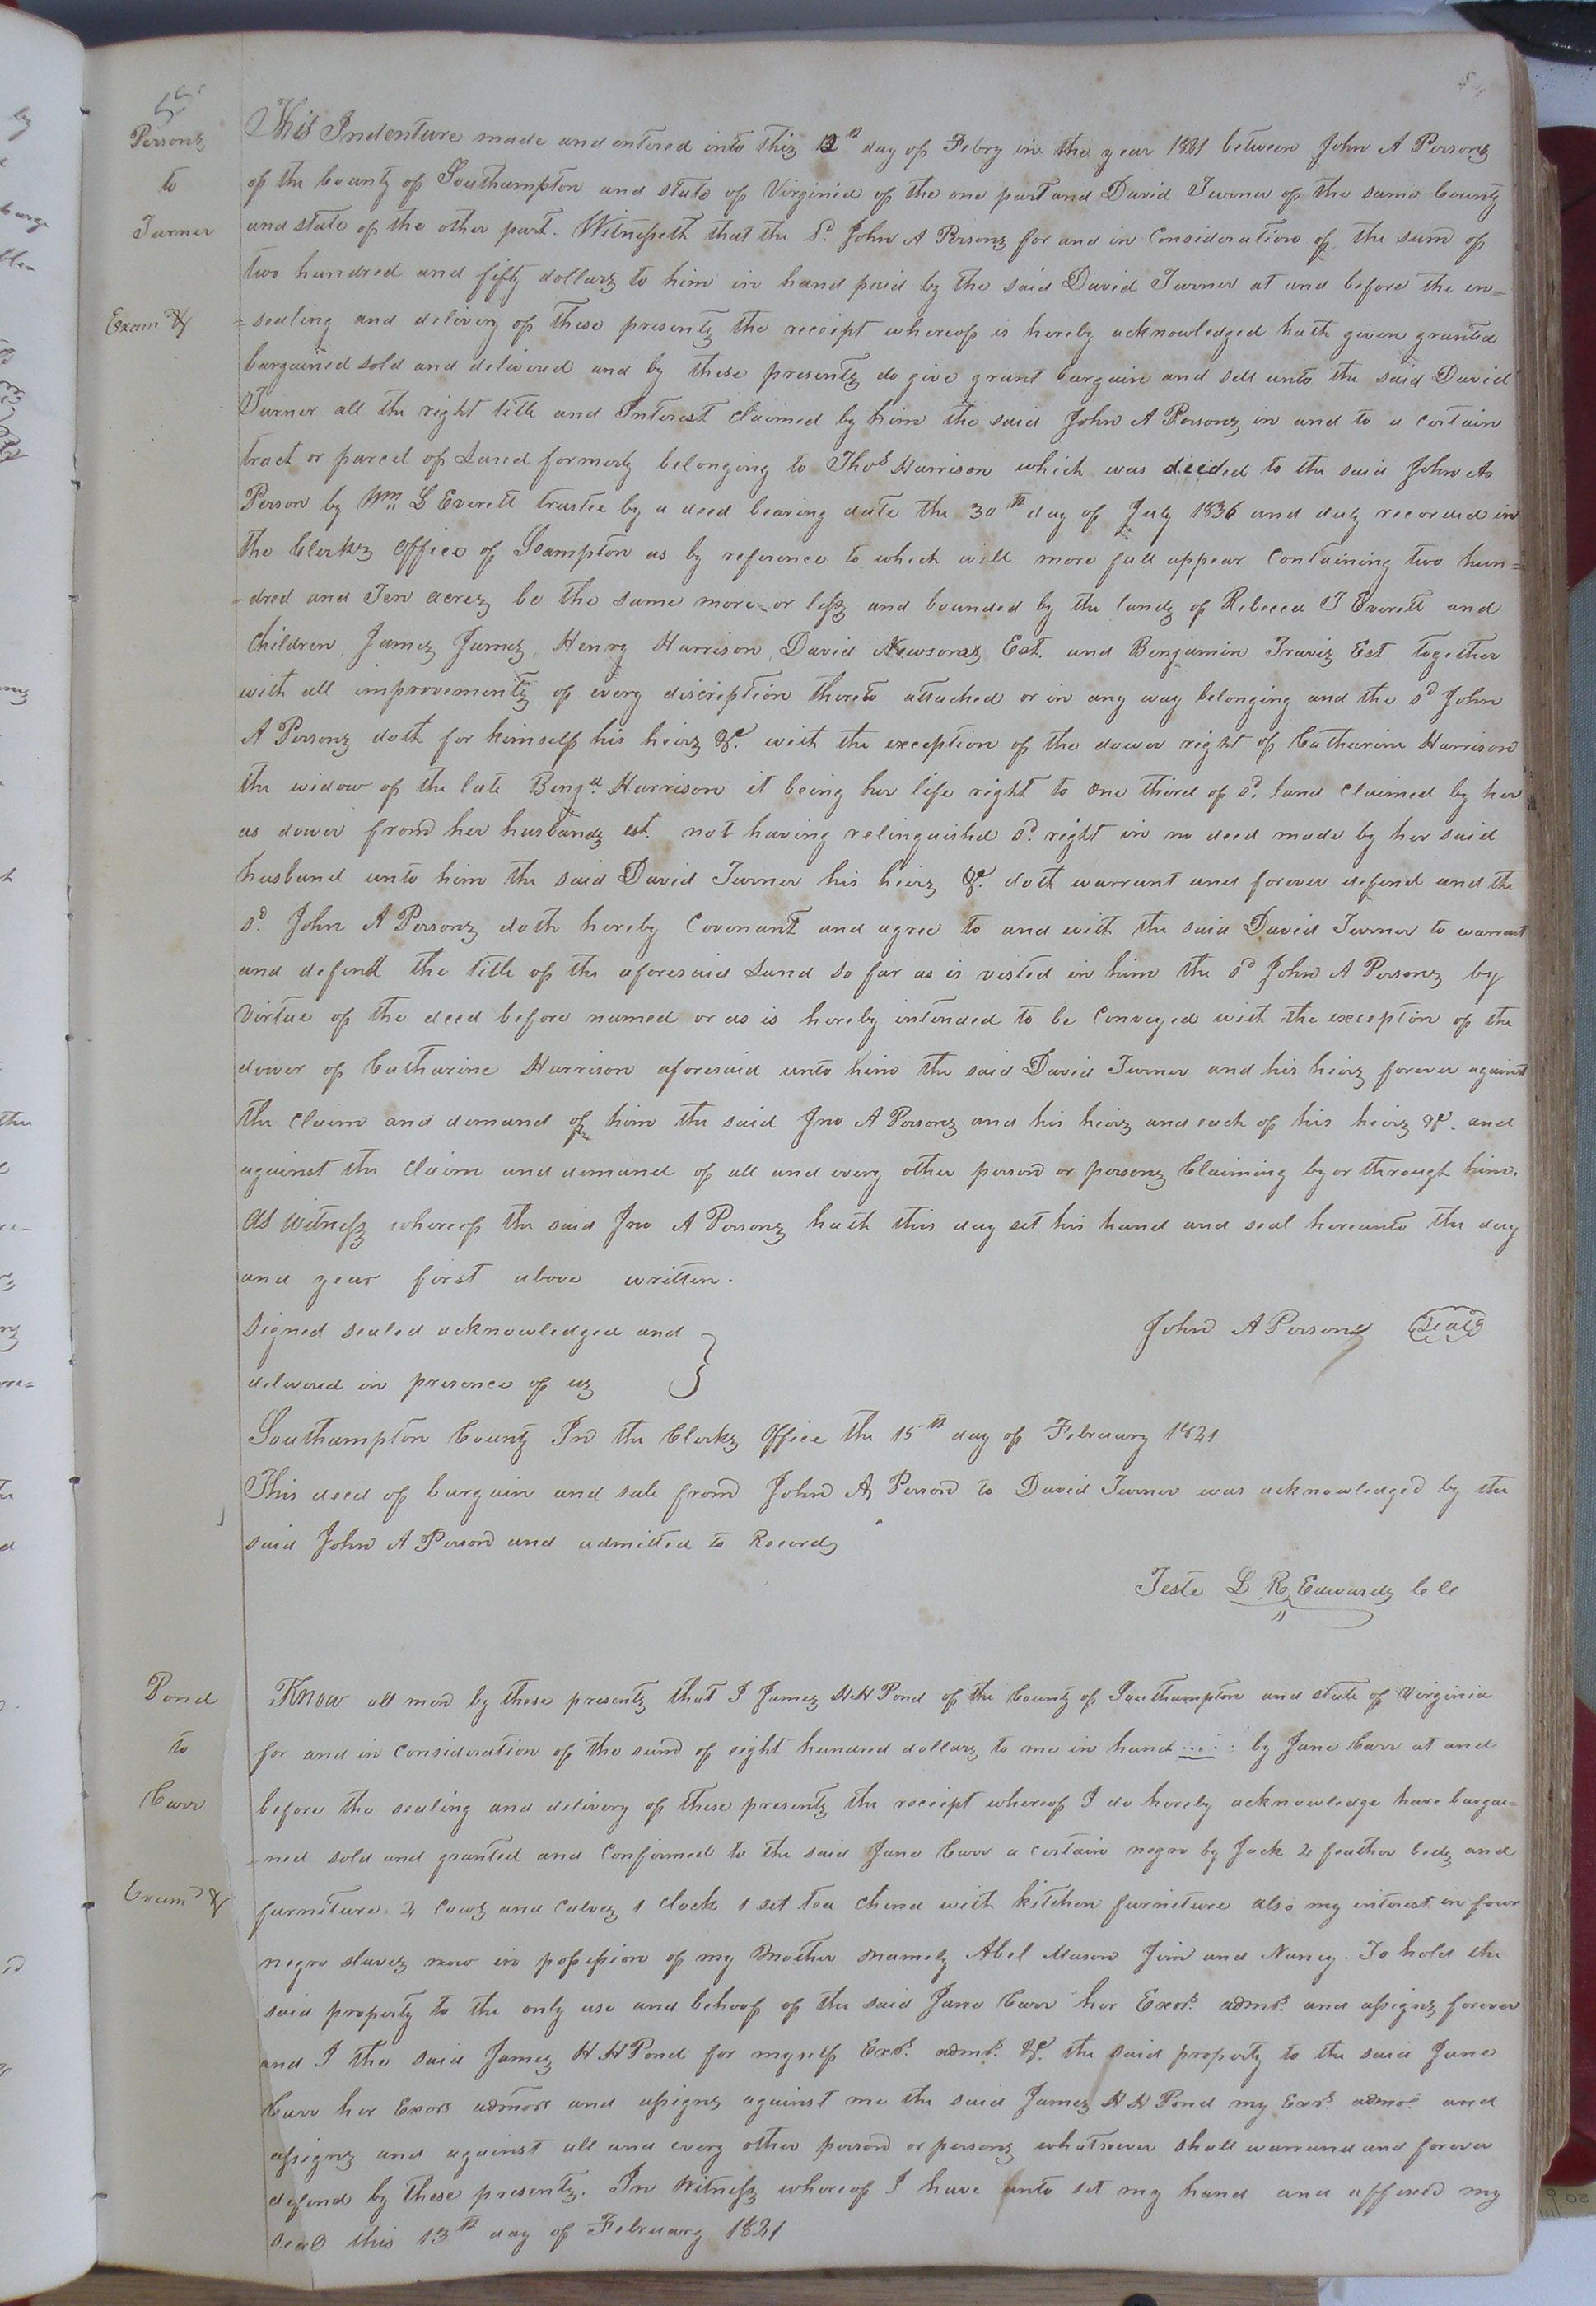 Persons
to
Turner
Exam d
This Indenture made and entered into this 12th day of Febry in the year 1841 between John A Persons
of the County of Southampton and state of Virginia of the one part and David Turner of the same County
and state of the other part. Witnesseth that the sd. John A Persons for and in Consideration of the sum of
two hundred and fifty dollars to him in hand paid by the said David Turner at and before the en=
=sealing and delivery of these presents the receipt whereof is hereby acknowledged hath given granted
bargained sold and delivered and by these presents do give grant bargain and sell unto the said David
Turner all the right title and Interest claimed by him the said John A Persons in and to a certain
tract or parcel of Land formerly belonging to Thos Harrison which was deeded to the said John A
Person by Wm L Everett trustee by a deed bearing date the 30th day of July 1836 and duly recorded in
the Clerks office of Sampton as by reference to which will more full appear Containing two hun=
-dred and Ten acres be the same more or less and bounded by the lands of Rebecca T Everett and
Children, James James, Henry Harrison, David Newsoms Est. and Benjamin Travis Est together
with all improvements of every discription thereto attached or in any way belonging and the sd John
A Persons doth for himself his heirs &c. with the exception of the dower right of Catharine Harrison
the widow of the late Benja. Harrison it being her life right to one third of sd. land claimed by her
as dower from her husbands est. not having relinquishd sd. right in no deed made by her said
husband unto him the said David Turner his heirs &c. doth warrant and forever defend and the
sd. John A Persons doth hereby Covenant and agree to and with the said David Turner to warrant
and defend the title of the aforesaid Land so far as is vested in him the sd John A Persons by
Virtue of the deed before named or as is hereby intended to be Conveyed with the exception of the
dower of Catharine Harrison aforesaid unto him the said David Turner and his heirs forever against
the claim and demand of him the said Jno A Persons and his heirs and each of his heirs &c. and
against the claim and demand of all and every other person or persons Claiming by or through him.
As witness whereof the said Jno A Persons hath this day set his hand and seal hereunto the day
and year first above written.
Signed sealed acknowledged and
John A Persons Seal
delivered in presence of us
Southampton County In the Clerks Office the 15th day of February 1841
This deed of bargain and sale from John A Person to David Turner was acknowledged by the
said John A Person and admitted to Record
Teste L R Edwards CC
Pond
to
Carr
Examd
Know all men by these presents that I James HH Pond of the County of Southampton and state of Virginia
for and in consideration of the sum of eight hundred dollars to me in hand by Jane Carr at and
before the sealing and delivery of these presents the receipt whereof I do hereby acknowledge have bargai=
=ned sold and granted and Confirmed to the said Jane Carr a certain negro by Jack 2 feather beds and
furniture 2 Cows and Calves 1 clock 1 set tea China with kitchen furniture also my interest in four
negro slaves now in possession of my Mother namely Abel Mason Jim and Nancy. To hold the
said property to the only use and behoof of the said Jane Carr her Exors. admrs. and assigns forever
and I the said James H H Pond for myself Exrs. admrs. &c. the said property to the said Jane
Carr her Exors admors and assigns against me the said James H H Pond my Exrs. admos and
assigns and against all and every other person or persons whatsoever shall warrand and forever
defend by these presents. In Witness whereof I have unto set my hand and affixed my
seal this 13th day of February 1841